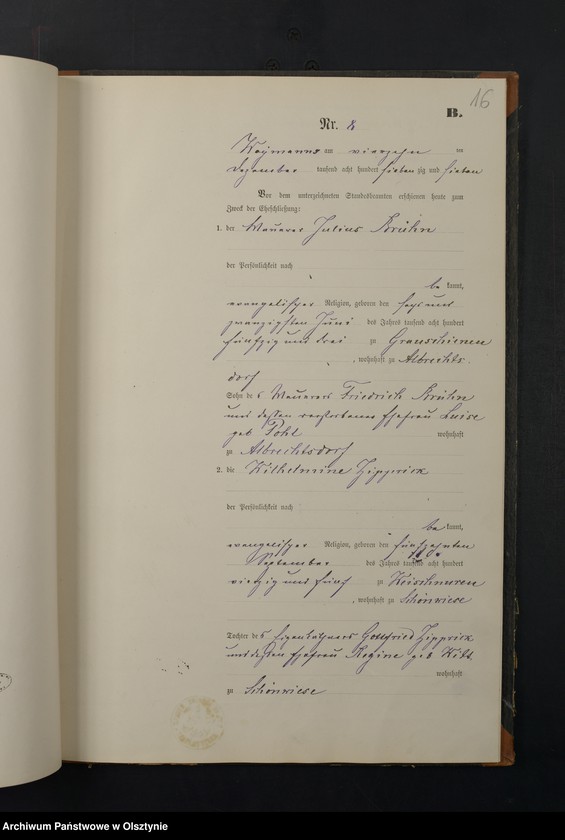 16
B.
Nr. 8
am vierzehn ten
Dezember tausend acht hundert sieben zig und sieben
Vor dem unterzeichneten Standesbeamten erschienen heute zum
Zweck der Eheschließung:
1. der Maurer Julius Brühn
der Persönlichkeit nach
be kannt,
evangelischer Religion, geboren den sechs und
zwanzigsten Juni des Jahres tausend acht hundert
fünfzig und drei zu
, wohnhaft zu Albrechts
dorf
Sohn des Maurers Friedrich Brühn
und dessen verstorbenen Ehefrau Luise
geb Pohl wohnhaft
zu Albrechtsdorf
2. die Wilhelmine Zipprick
der Persönlichkeit nach
be kannt,
evangelischer Religion, geboren den fünfzehnten
September des Jahres tausend acht hundert
vierzig und fünf zu
, wohnhaft zu Schönwiese
Tochter des Eigenkäthners Gottfried Zipprick
und dessen Ehefrau Regine geb
wohnhaft
zu Schönwiese
Archiwum Państwowe w Olsztynie